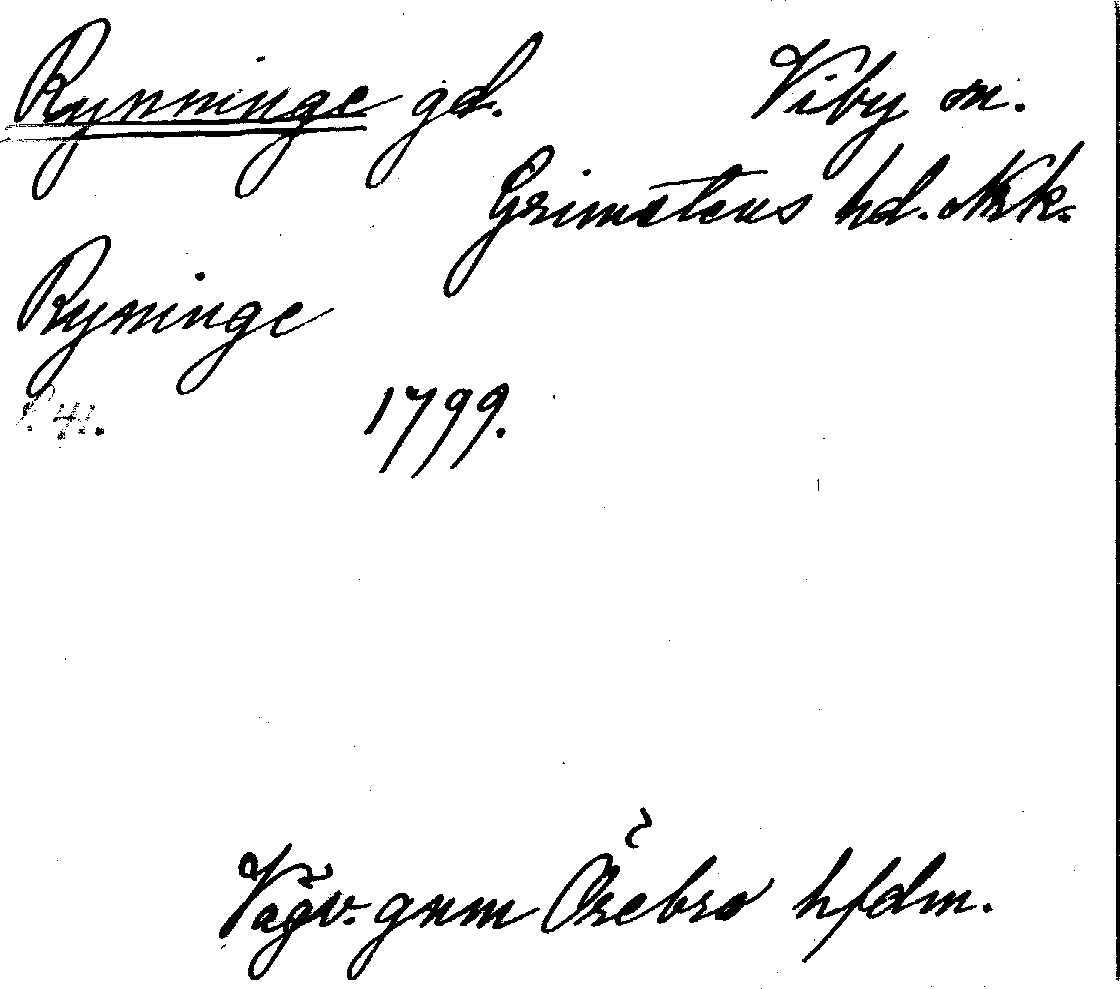 Rynninge gd. Viby sn.
Grimstens hd. Nrk.
Ryninge
1799.
Vägv. gnm Örebro hfdm.